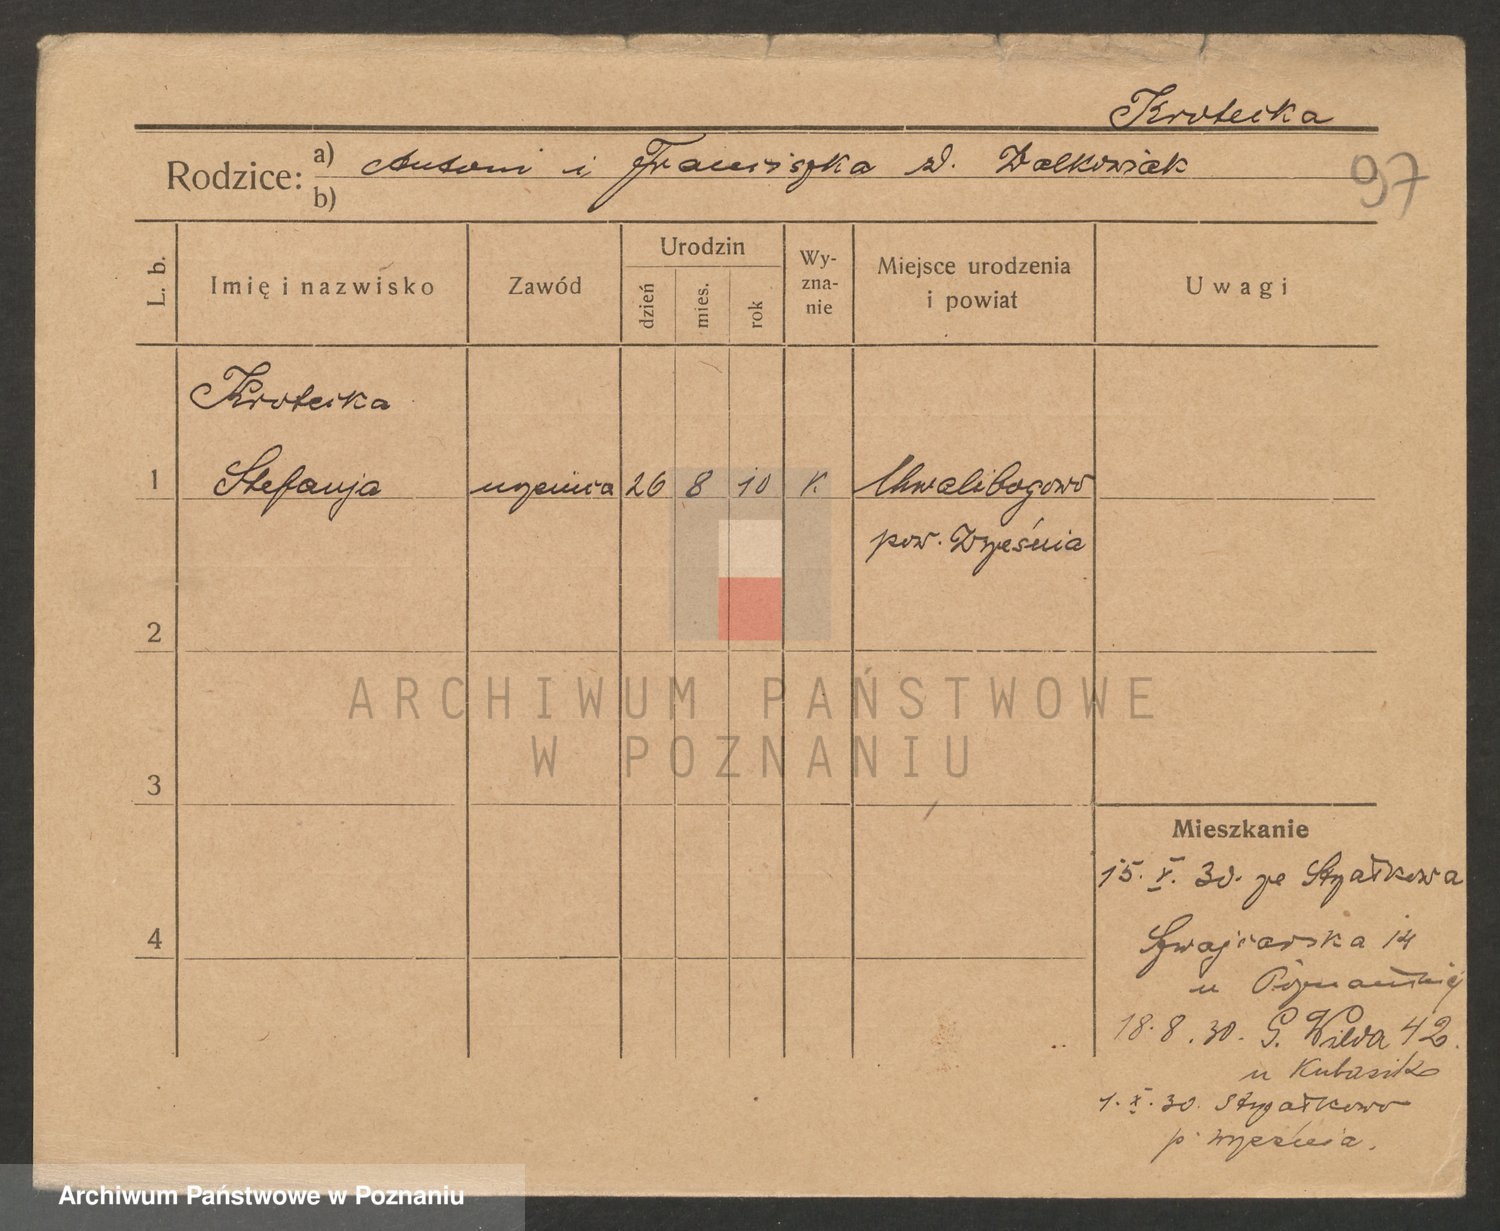 Krotecka
Rodzice: a) Antoni i Franciszka d. Walkowiak
b)
97
L. b.
Imię i nazwisko
Zawód
Urodzin
dzień
mies.
rok
Wy-
zna-
nie
Miejsce urodzenia
i powiat
Uwagi
Krotecka
1 Stefanja uczenica 26 8 10 K. Chwalibogowo
pow. Września
2
ARCHIWUM PAŃSTWOWE
W POZNANIU
3
Mieszkanie
15. V. 30. ze Strzałkowa
4
Szwajcarska 14
u
18.8.30. G. Wilda 42.
u Kubasik
1. X. 30. Strzałkowo
p. Września.
Archiwum Państwowe w Poznaniu